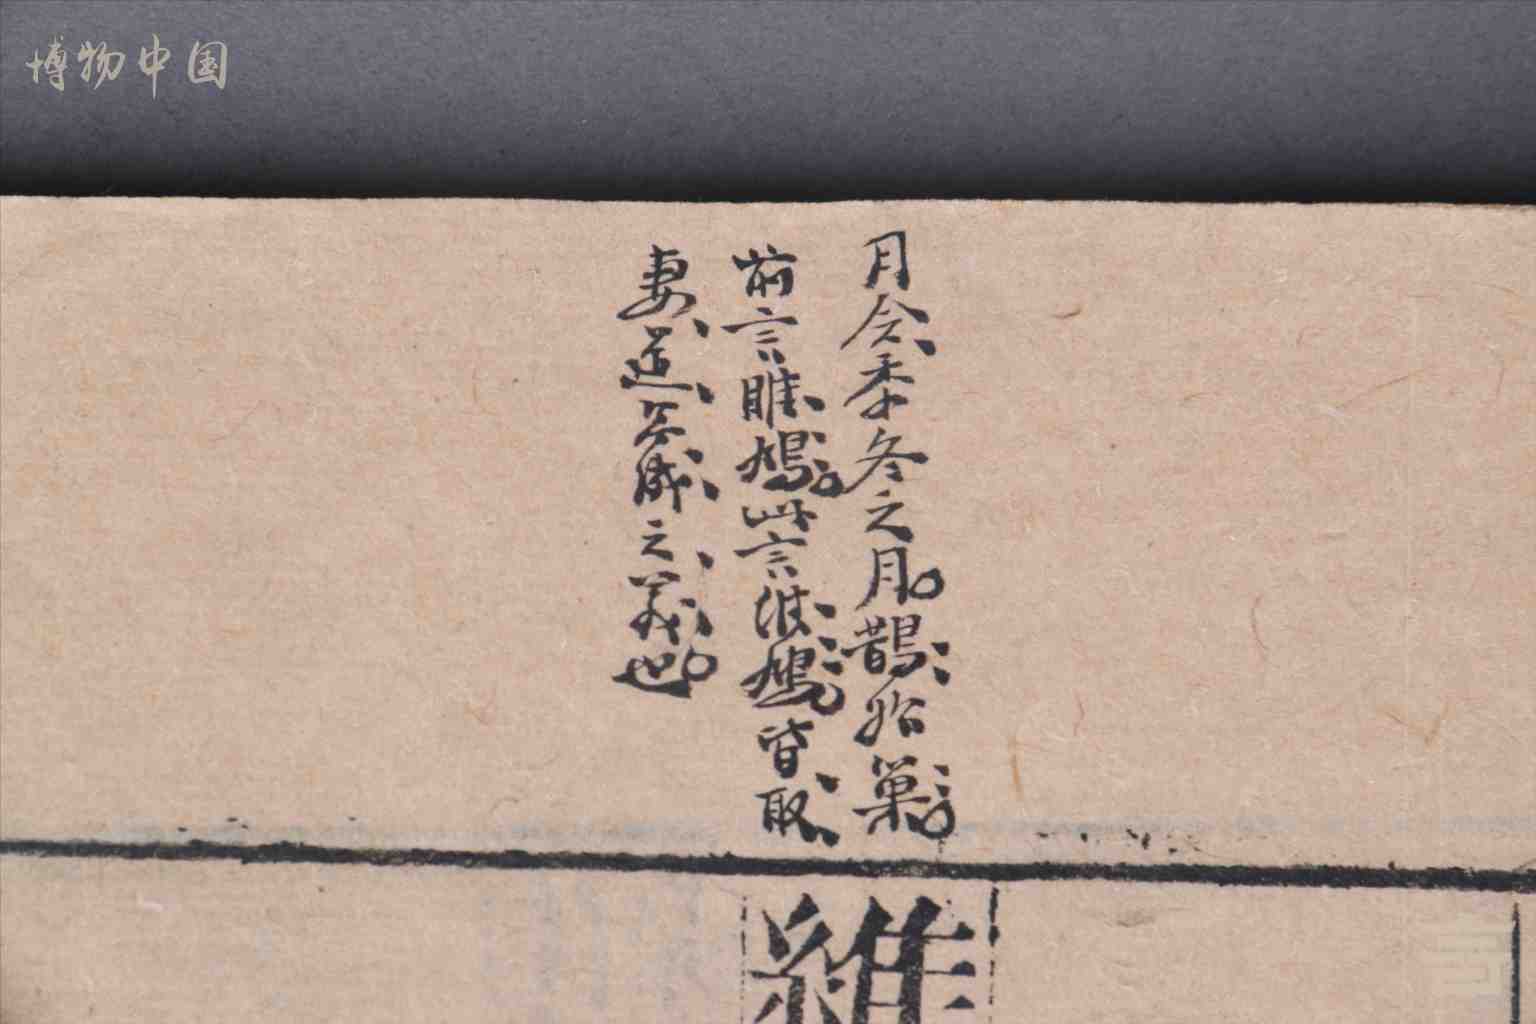 博物中国
月令季冬之月鵲始巢
前言雎鳩此言鳲鳩皆取
妻道無成之義也
維